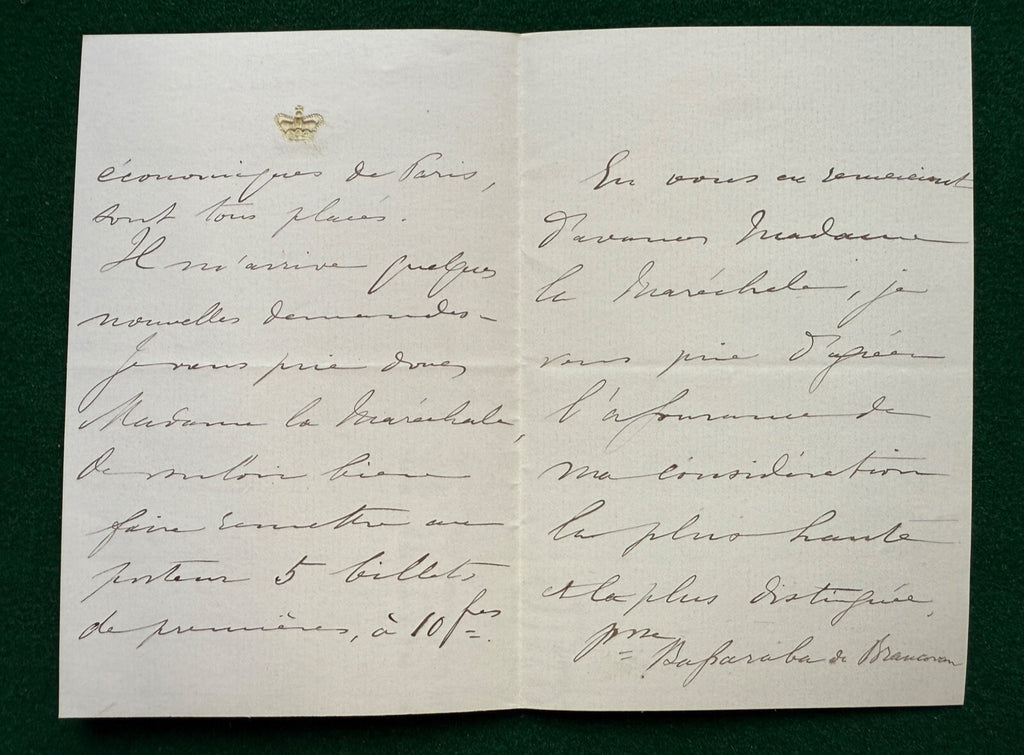 économiques de Paris,
sont tous placés.
Il m'arrive quelques
nouvelles demandes –
Je vous prie donc,
Madame la Maréchale,
de vouloir bien
faire remettre au
porteur 5 billets
de premières, à 10 frcs.
En vous en remerciant
d'avance, Madame
la Maréchale, je
vous prie d'agréer
l'assurance de
ma considération
la plus haute
et la plus distinguée,
Pcsse Bassaraba de Brancovan